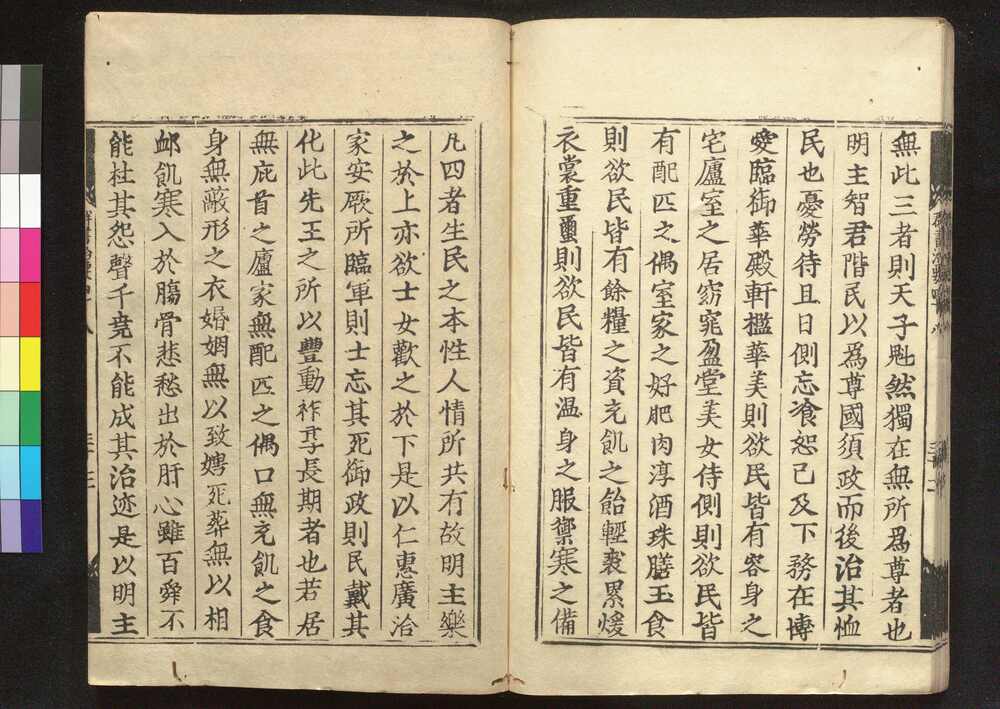 無此三者則天子魁然獨在無所爲尊者也
明主智君階民以爲尊國須政而後治其恤
民也憂勞待旦日側忘飡恕己及下務在博
愛臨御華殿軒檻華美則欲民皆有容身之
宅廬室之居窈窕盈堂美女侍側則欲民皆
有配匹之偶室家之好肥肉淳酒珠膳玉食
則欲民皆有餘糧之資充飢之飴輕裘累煖
衣裳重蠒則欲民皆有温身之服禦寒之備
凡四者生民之本性人情所共有故明主樂
之於上亦欲士女歡之於下是以仁惠廣洽
家安厥所臨軍則士忘其死御政則民戴其
化此先王之所以豐動祚享長期者也若居
無庇首之廬家無配匹之偶口無充飢之食
身無蔽形之衣婚姻無以致娉死葬無以相
䘏飢寒入於腸骨悲愁出於肝心雖百舜不
能杜其怨聲千堯不能成其治迹是以明主